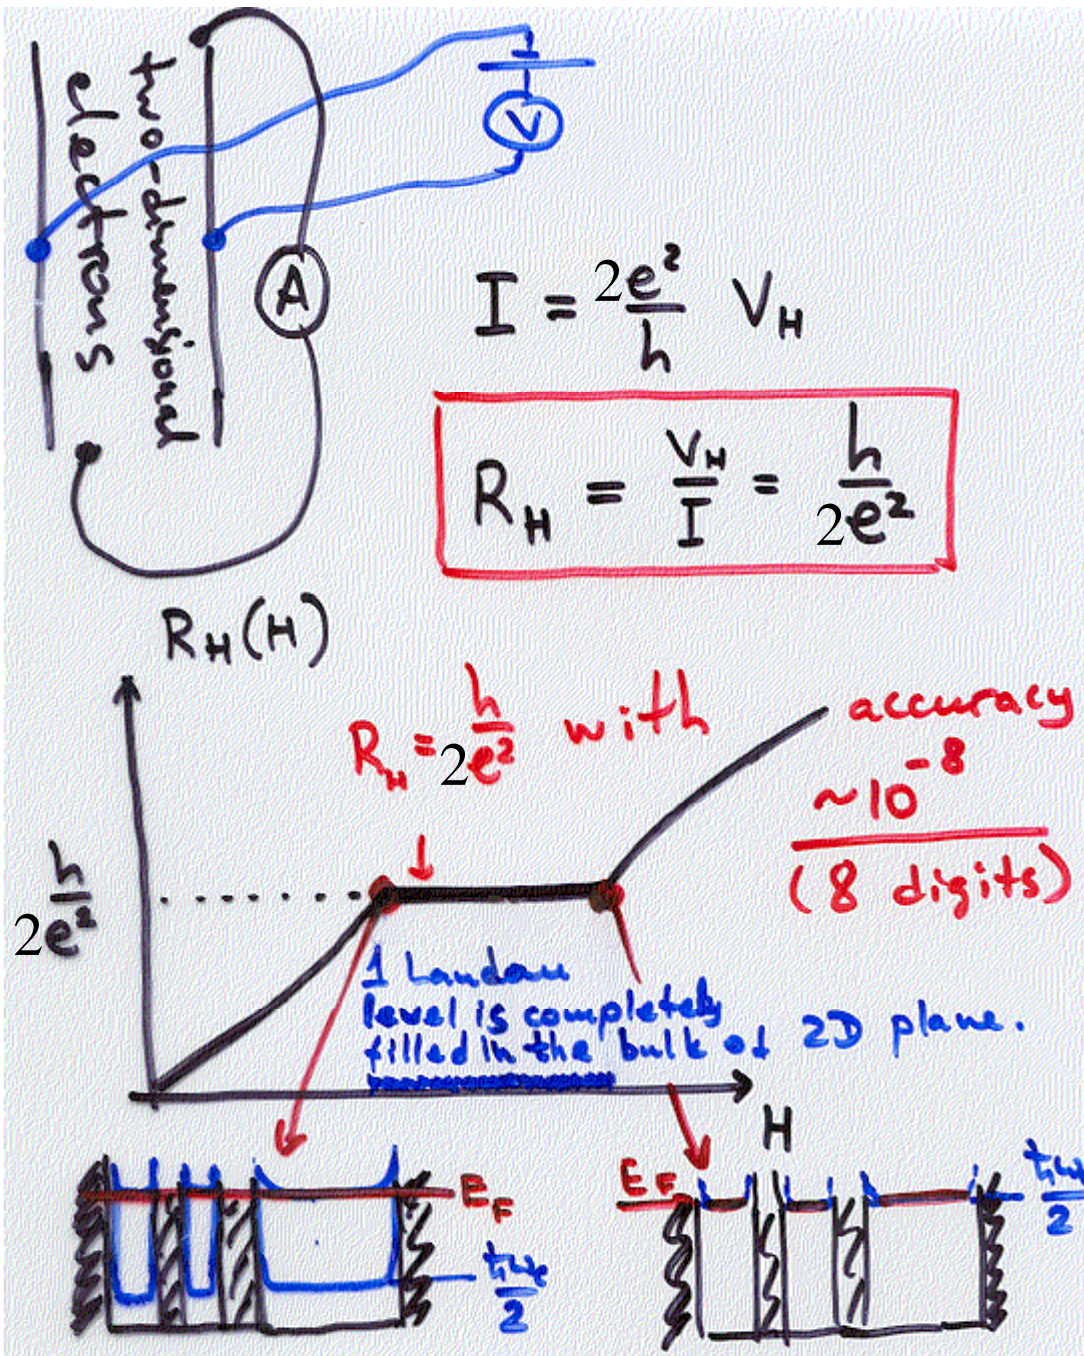 two-dimensional
electrons
V
A
I = 2e²/h V_H
R_H = V_H/I = h/2e²
R_H(H)
R_H = h/2e² with accuracy
~10⁻⁸
(8 digits)
h/2e²
1 Landau
level is completely
filled in the bulk of 2D plane.
H
E_F
ħω_c/2
E_F
ħω_c/2